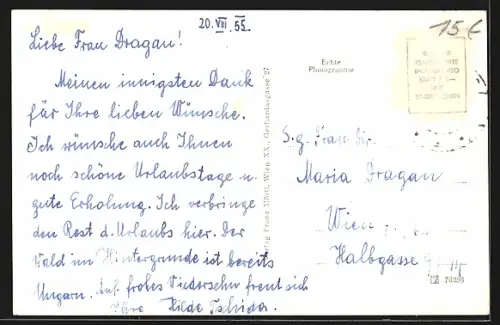 20. VIII. 55.
15€
Liebe Frau Dragan!
Meinen innigsten Dank
für Ihre lieben Wünsche.
Ich wünsche auch Ihnen
noch schöne Urlaubstage u.
gute Erholung. Ich verbringe
den Rest d. Urlaubs hier. Der
Wald im Hintergrunde ist bereits
Ungarn. Auf frohes Wiedersehn freut sich
Ihre Hilde
Wien XX., Gerhardusgasse 27
Echte
Photographie
S.g. Frau Dir.
Maria Dragan
Wien
Halbgasse